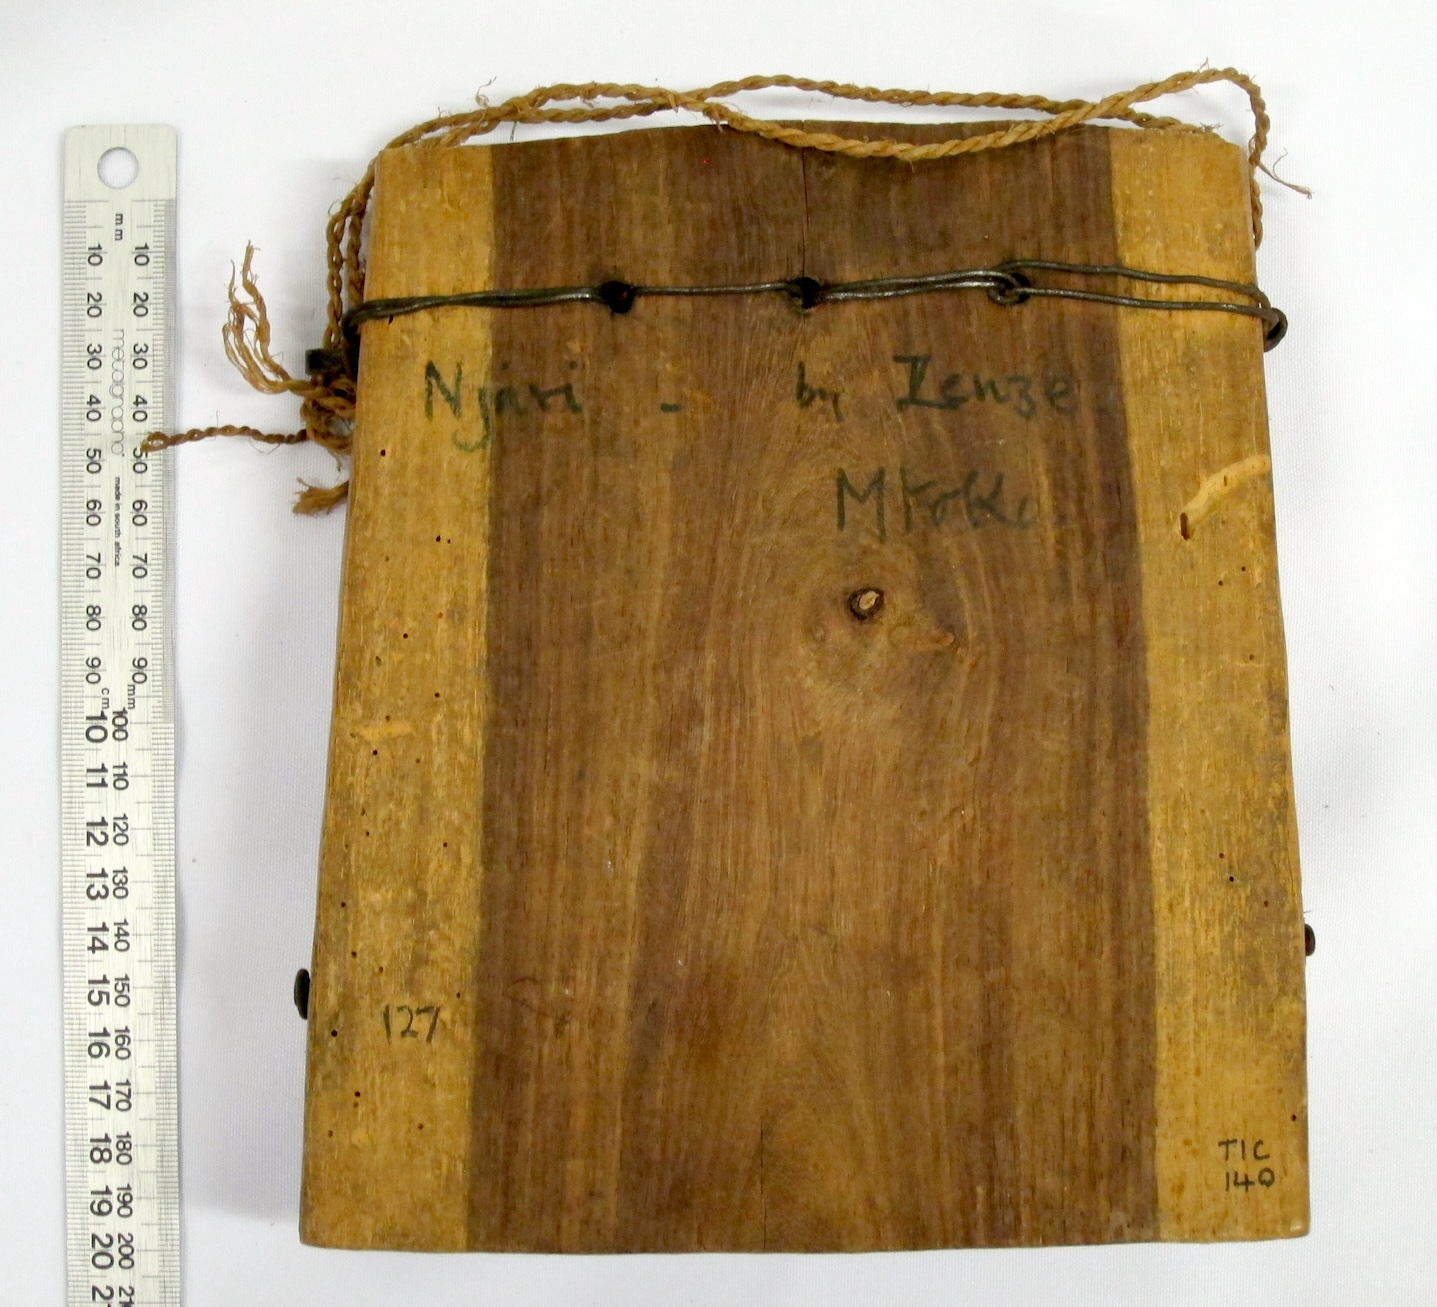 Njari - by Zenze
Mtoko.
127
TIC
140
mm
10 10
20 20
30 30
40 40
50 50
60 60
70 70
80 80
90 90
cm mm
10 100
11 110
12 120
13 130
14 140
15 150
16 160
17 170
18 180
19 190
20 200
made in south africa